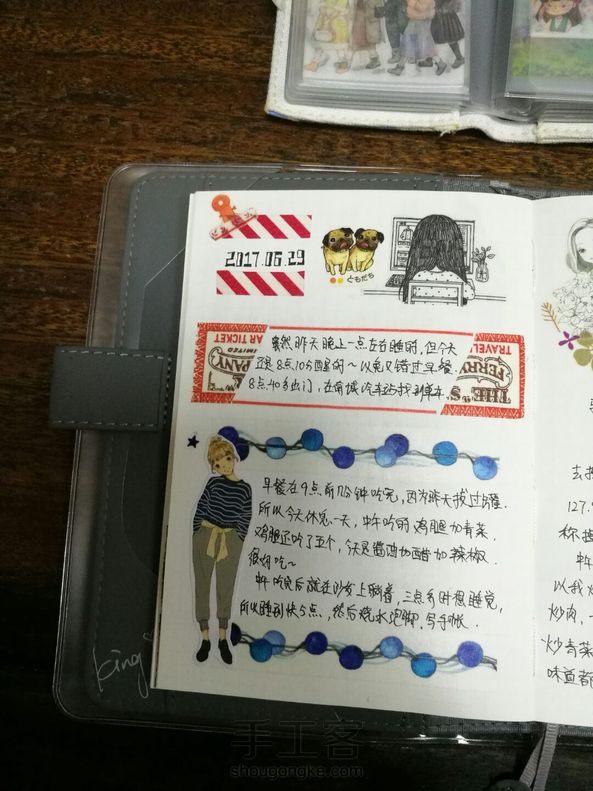 2017.06.29
ともだち
虽然昨天晚上一点左右睡的,但今天
还是8点10分醒的~以免又错过早餐.
8点40多出门,在南城汽车站找到单车.
AR TICKET
TRAVEL
LIMITED
COMPANY
THE"S
FERRY
早餐在9点前几分钟吃完,因为昨天拔过罐.
所以今天休息一天,中午吃的鸡腿加青菜.
鸡腿还吃了五个,今天是酱油加醋加辣椒.
很好吃~
中午吃完后就在沙发上躺着,三点多时想睡觉,
所以睡到快5点,然后烧水泡脚.写手帐.
去
127.
称
中
以我
炒肉,一
炒青菜
味道都
king
手工客
shougongke.com